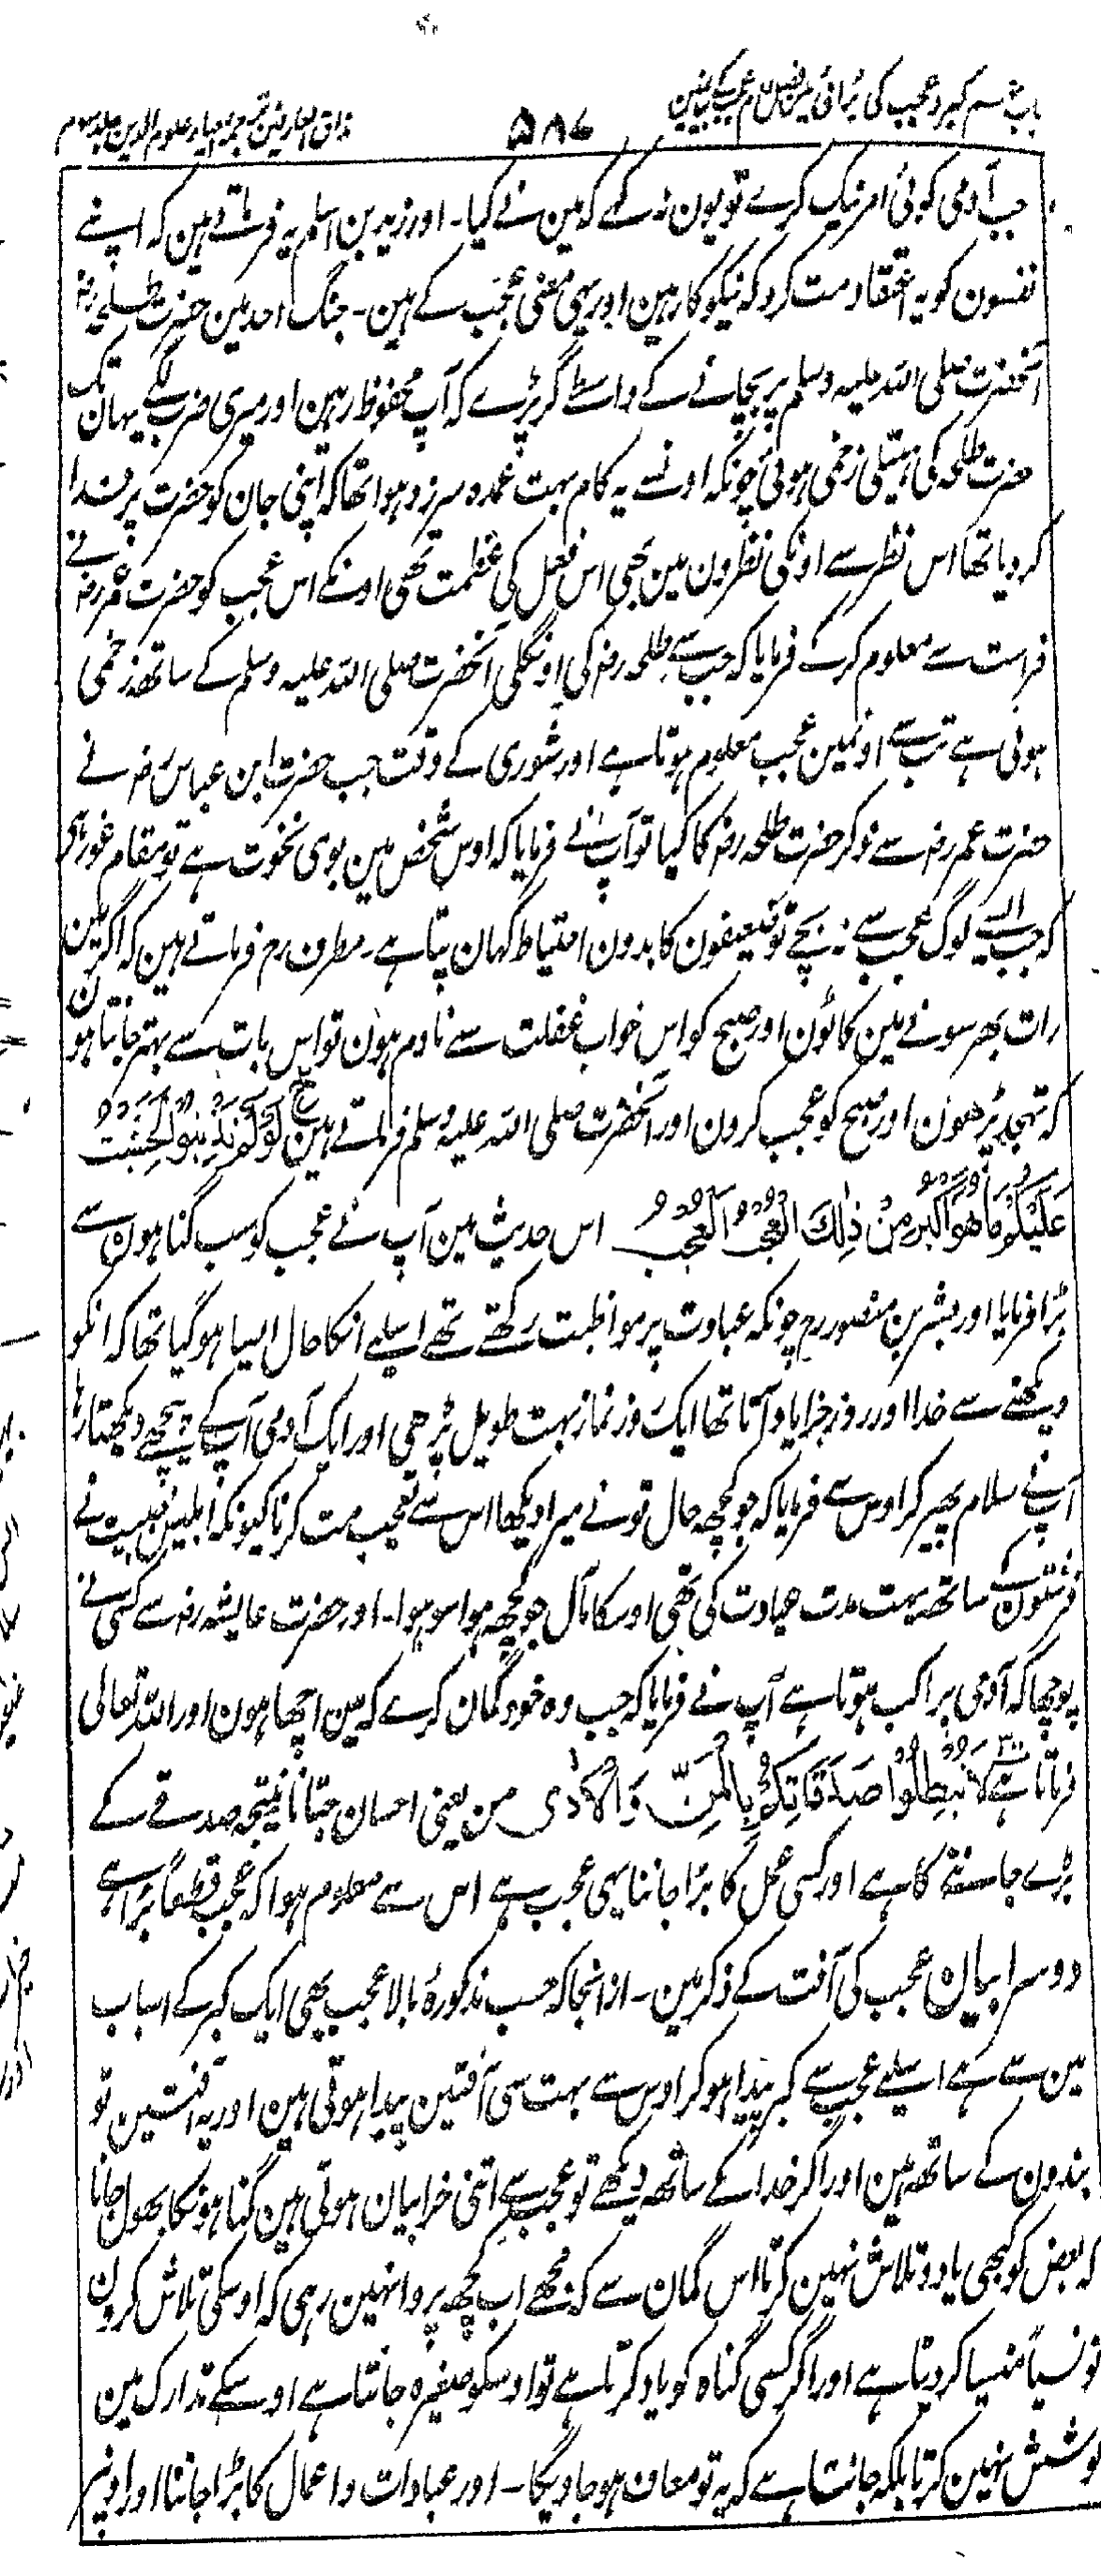 باب نہم کبر و عجب کی برائی مین فصل دوم عجب کے بیان مین
۵۸۶
مذاق العارفین ترجمہ احیاء علوم الدین جلد سوم
جب آدمی کوئی امر نیک کرے تو یون نہ کہے کہ مین نے کیا۔ اور زید بن اسلم یہ فرماتے ہین کہ اپنے
نفسون کو یہ اعتقاد مت کرو کہ نیکوکار ہین اور یہی معنی عجب کے ہین۔ جنگ احد مین حضرت طلحہ رضہ
آنحضرت صلی اللہ علیہ وسلم پر بچانے کے واسطے گر پڑے کہ آپ محفوظ رہین اور میری ضرب لگے یہان تک
حضرت طلحہ کی ہتیلی زخمی ہوئی چونکہ اونسے یہ کام بہت عمدہ سرزد ہوا تھا کہ اپنی جان کو حضرت پر فدا
کر دیا تھا اس نظر سے اونکی نظرون مین بھی اس فعل کی عظمت تھی اونکے اس عجب کو حضرت عمر رضہ نے
فراست سے معلوم کر کے فرمایا کہ جب سے طلحہ رضہ کی اونگلی آنحضرت صلی اللہ علیہ وسلم کے ساتھ زخمی
ہوئی ہے تب سے اونمین عجب معلوم ہوتا ہے اور شوری کے وقت جب حضرت ابن عباس رضہ نے
حضرت عمر رضہ سے ذکر حضرت طلحہ رضہ کا کیا تو آپ نے فرمایا کہ اوس شخص مین بوی نخوت ہے تو مقام غور ہے
کہ جب ایسے لوگ عجب سے نہ بچے تو ضعیفون کا بدون احتیاط کہان پتا ہے۔ مطرف رح فرماتے ہین کہ اگر مین
رات بھر سونے مین کاٹون اور صبح کو اس خواب غفلت سے نادم ہون تو اس بات سے بہتر جانتا ہون
کہ تہجد پڑھون اور صبح کو عجب کرون اور آنحضرت صلی اللہ علیہ وسلم فرماتے ہین لَوْ لَمْ تُذْنِبُوا لَخَشِيتُ
عَلَيْكُمْ مَا هُوَ أَكْبَرُ مِنْ ذٰلِكَ الْعُجْبُ الْعُجْبُ اس حدیث مین آپ نے عجب کو سب گناہون سے
بڑا فرمایا اور بشر بن منصور رح چونکہ عبادت پر مواظبت رکھتے تھے اسلیے انکا حال ایسا ہو گیا تھا کہ انکو
دیکھنے سے خدا اور روز جزا یاد آتا تھا ایک روز نماز بہت طویل پڑھی اور ایک آدمی آپ کے پیچھے دیکھتا رہا
آپ نے سلام پھیر کر اوس سے فرمایا کہ جو کچھ حال تو نے میرا دیکھا اس سے تعجب مت کرنا کیونکہ ابلیس خبیث نے
فرشتون کے ساتھ بہت مدت عبادت کی تھی اوسکا مآل جو کچھ ہوا سو ہوا۔ اور حضرت عایشہ رضہ سے کسی نے
پوچھا کہ آدمی برا کب ہوتا ہے آپ نے فرمایا کہ جب وہ خود گمان کرے کہ مین اچھا ہون اور اللہ تعالی
فرماتا ہے لَا تُبْطِلُوا صَدَقَاتِكُمْ بِالْمَنِّ وَالْأَذٰى من یعنی احسان جتانا نتیجہ صدقے کے
بڑے جاننے کا ہے اور کسی عمل کا بڑا جاننا یہی عجب ہے اس سے معلوم ہوا کہ عجب قطعاً برا ہے
دوسرا بیان عجب کی آفت کے ذکر مین۔ ازانجا کہ حسب مذکورۂ بالا عجب بھی ایک کبر کے اسباب
مین سے ہے اسلیے عجب سے کبر پیدا ہو کر اوس سے بہت سی آفتین پیدا ہوتی ہین اور یہ آفتین تو
بندون کے ساتھ ہین اور اگر خدا کے ساتھ دیکھے تو عجب سے اتنی خرابیان ہوتی ہین گناہونکا بھول جانا
کہ بعض کو کبھی یاد و تلاش نہین کرتا اس گمان سے کہ مجھے اب کچھ پروا نہین رہی کہ اوسکی تلاش کرون
تو نسیاً منسیا کر دیتا ہے اور اگر کسی گناہ کو یاد کرتا ہے تو اوسکو صغیرہ جانتا ہے اوسکے تدارک مین
کوشش نہین کرتا بلکہ جانتا ہے کہ یہ تو معاف ہو جاویگا۔ اور عبادات و اعمال کا بڑا جاننا اور اونپر